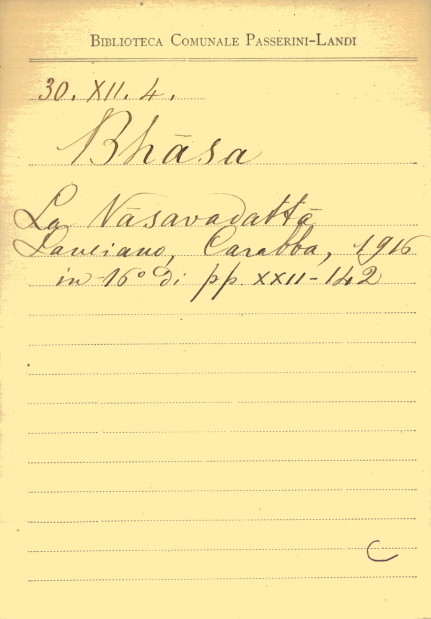 BIBLIOTECA COMUNALE PASSERINI-LANDI
30. XII. 4.
Bhāsa
La Vāsavadattā
Lanciano, Carabba, 1916
in 16° di pp. XXII-142
C